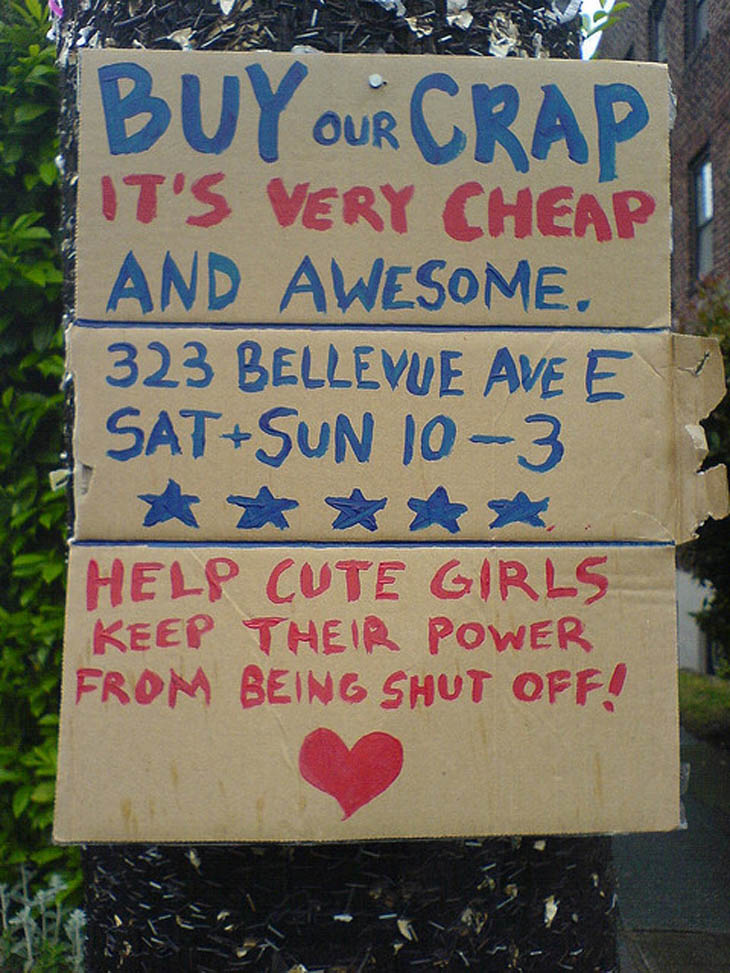 BUY OUR CRAP
IT'S VERY CHEAP
AND AWESOME.
323 BELLEVUE AVE E
SAT + SUN 10-3
HELP CUTE GIRLS
KEEP THEIR POWER
FROM BEING SHUT OFF!